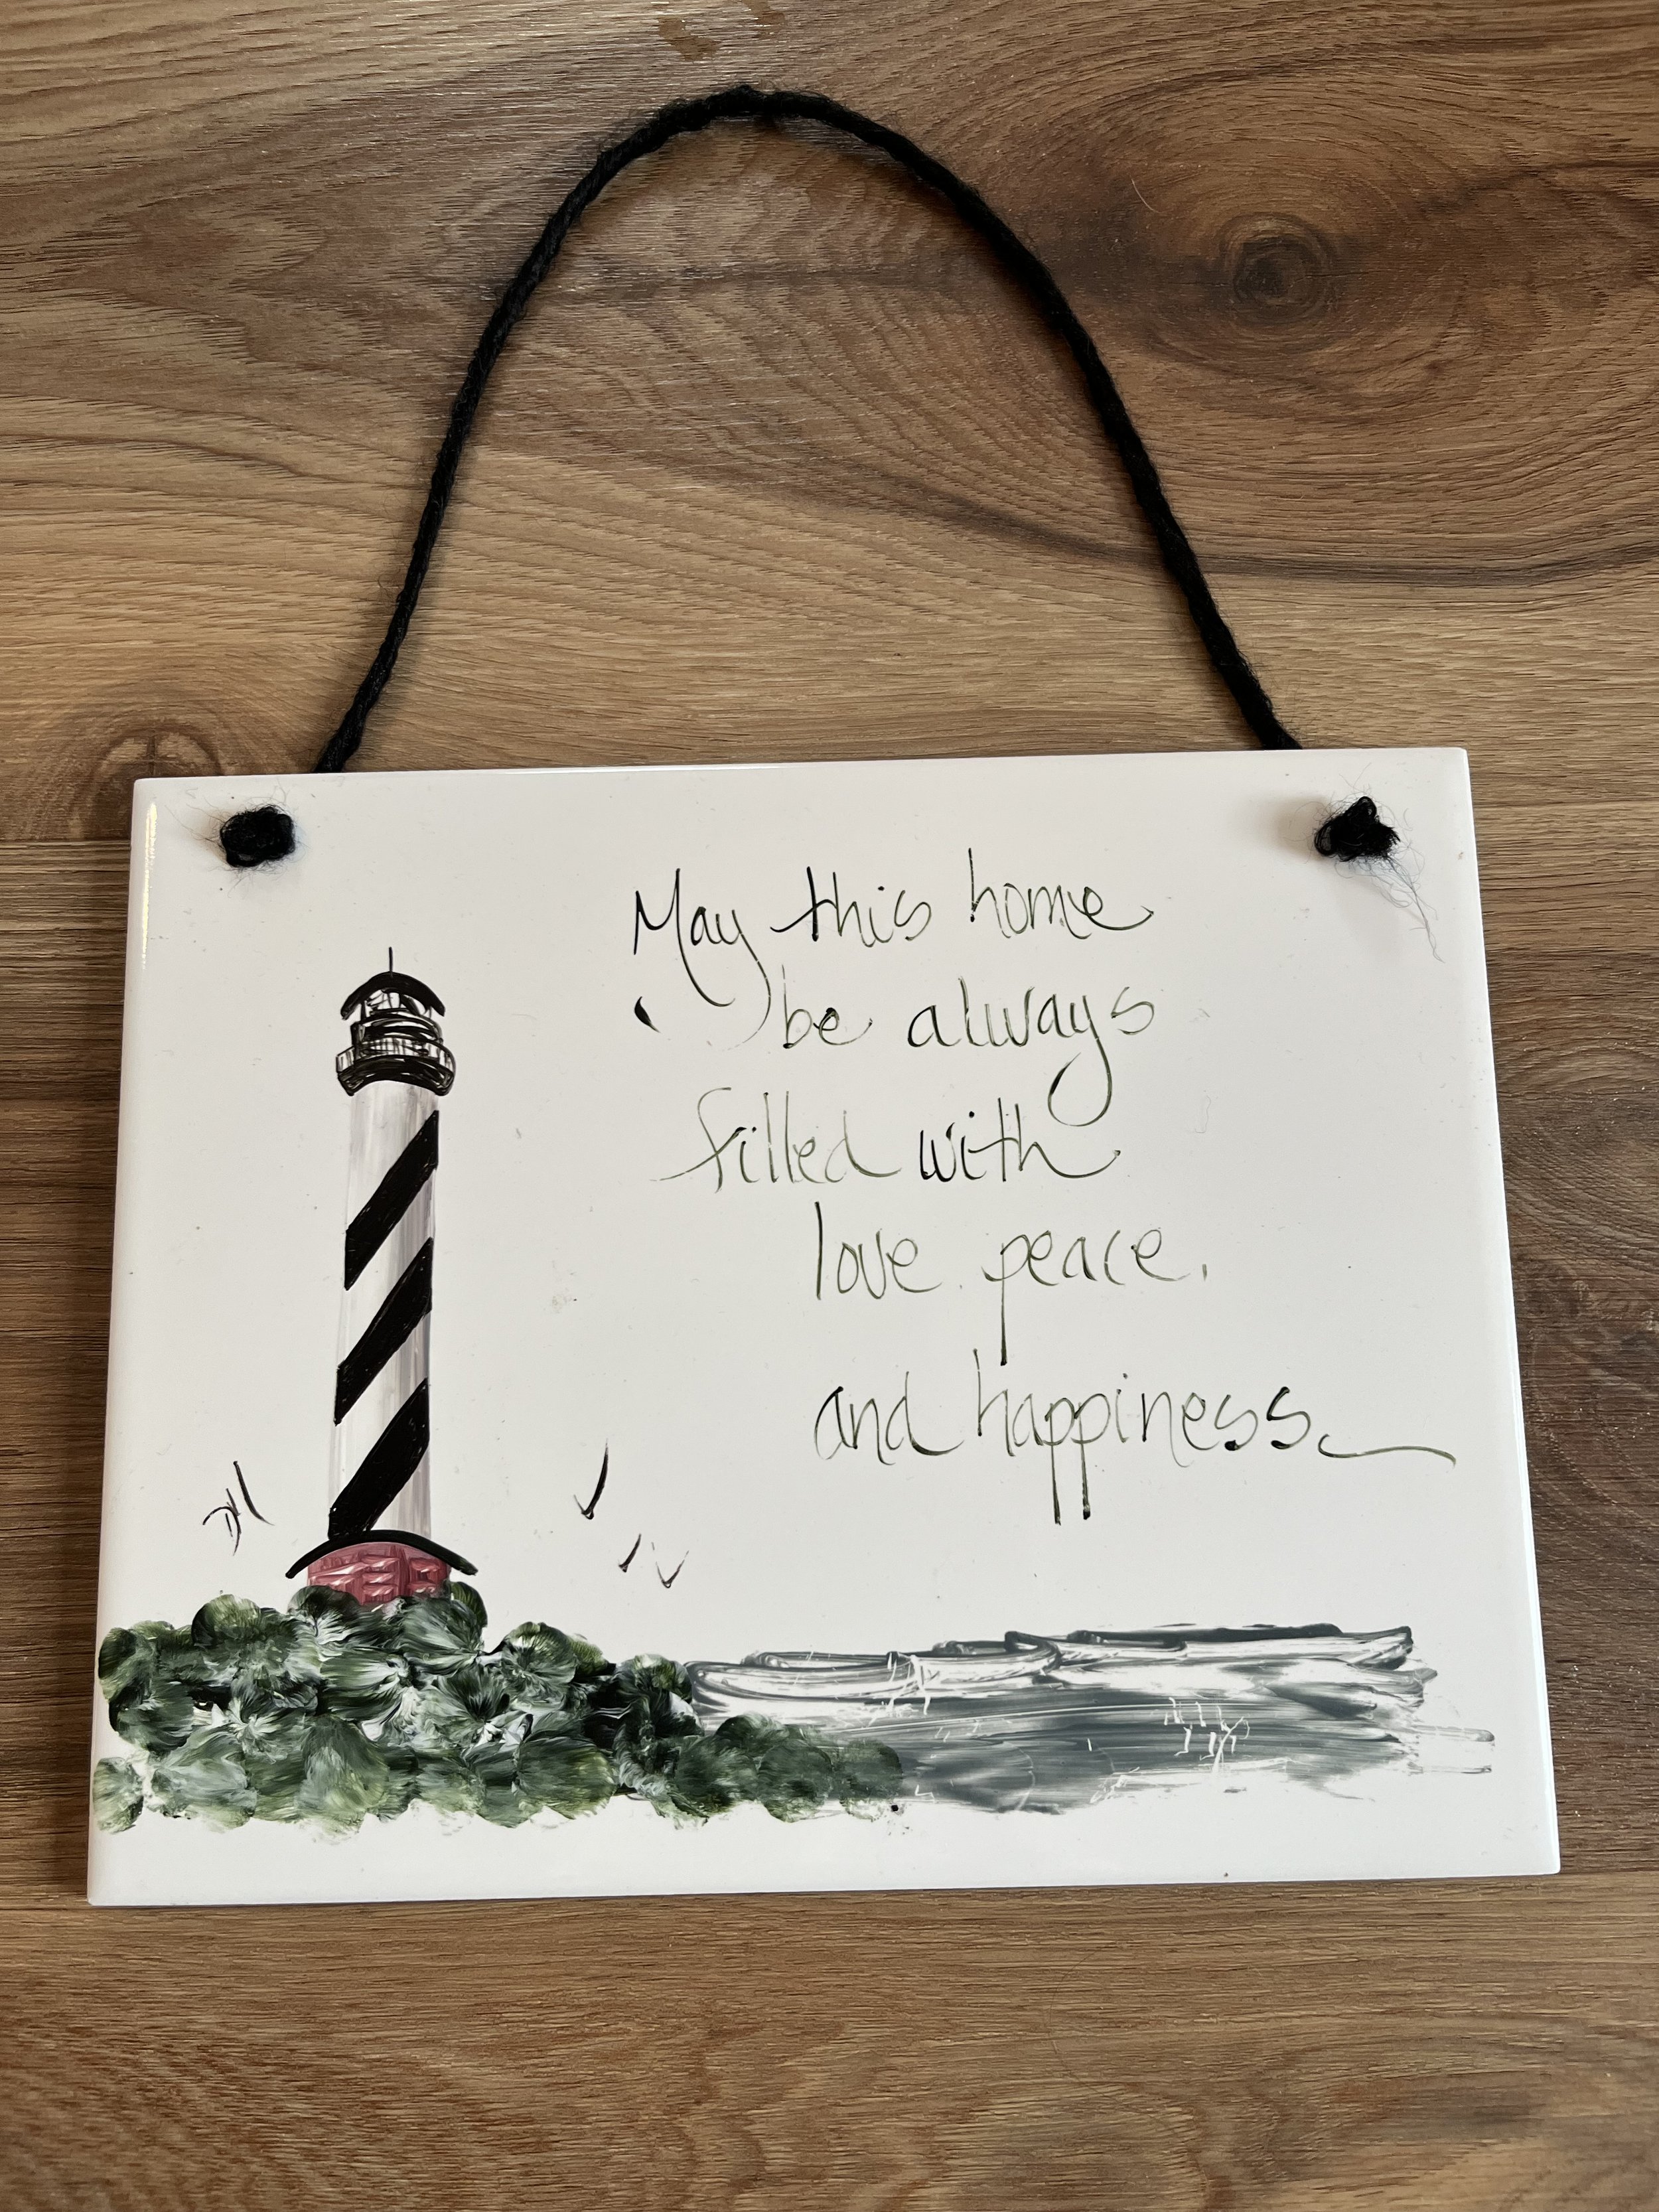 May this home
be always
filled with
love. peace.
and happiness